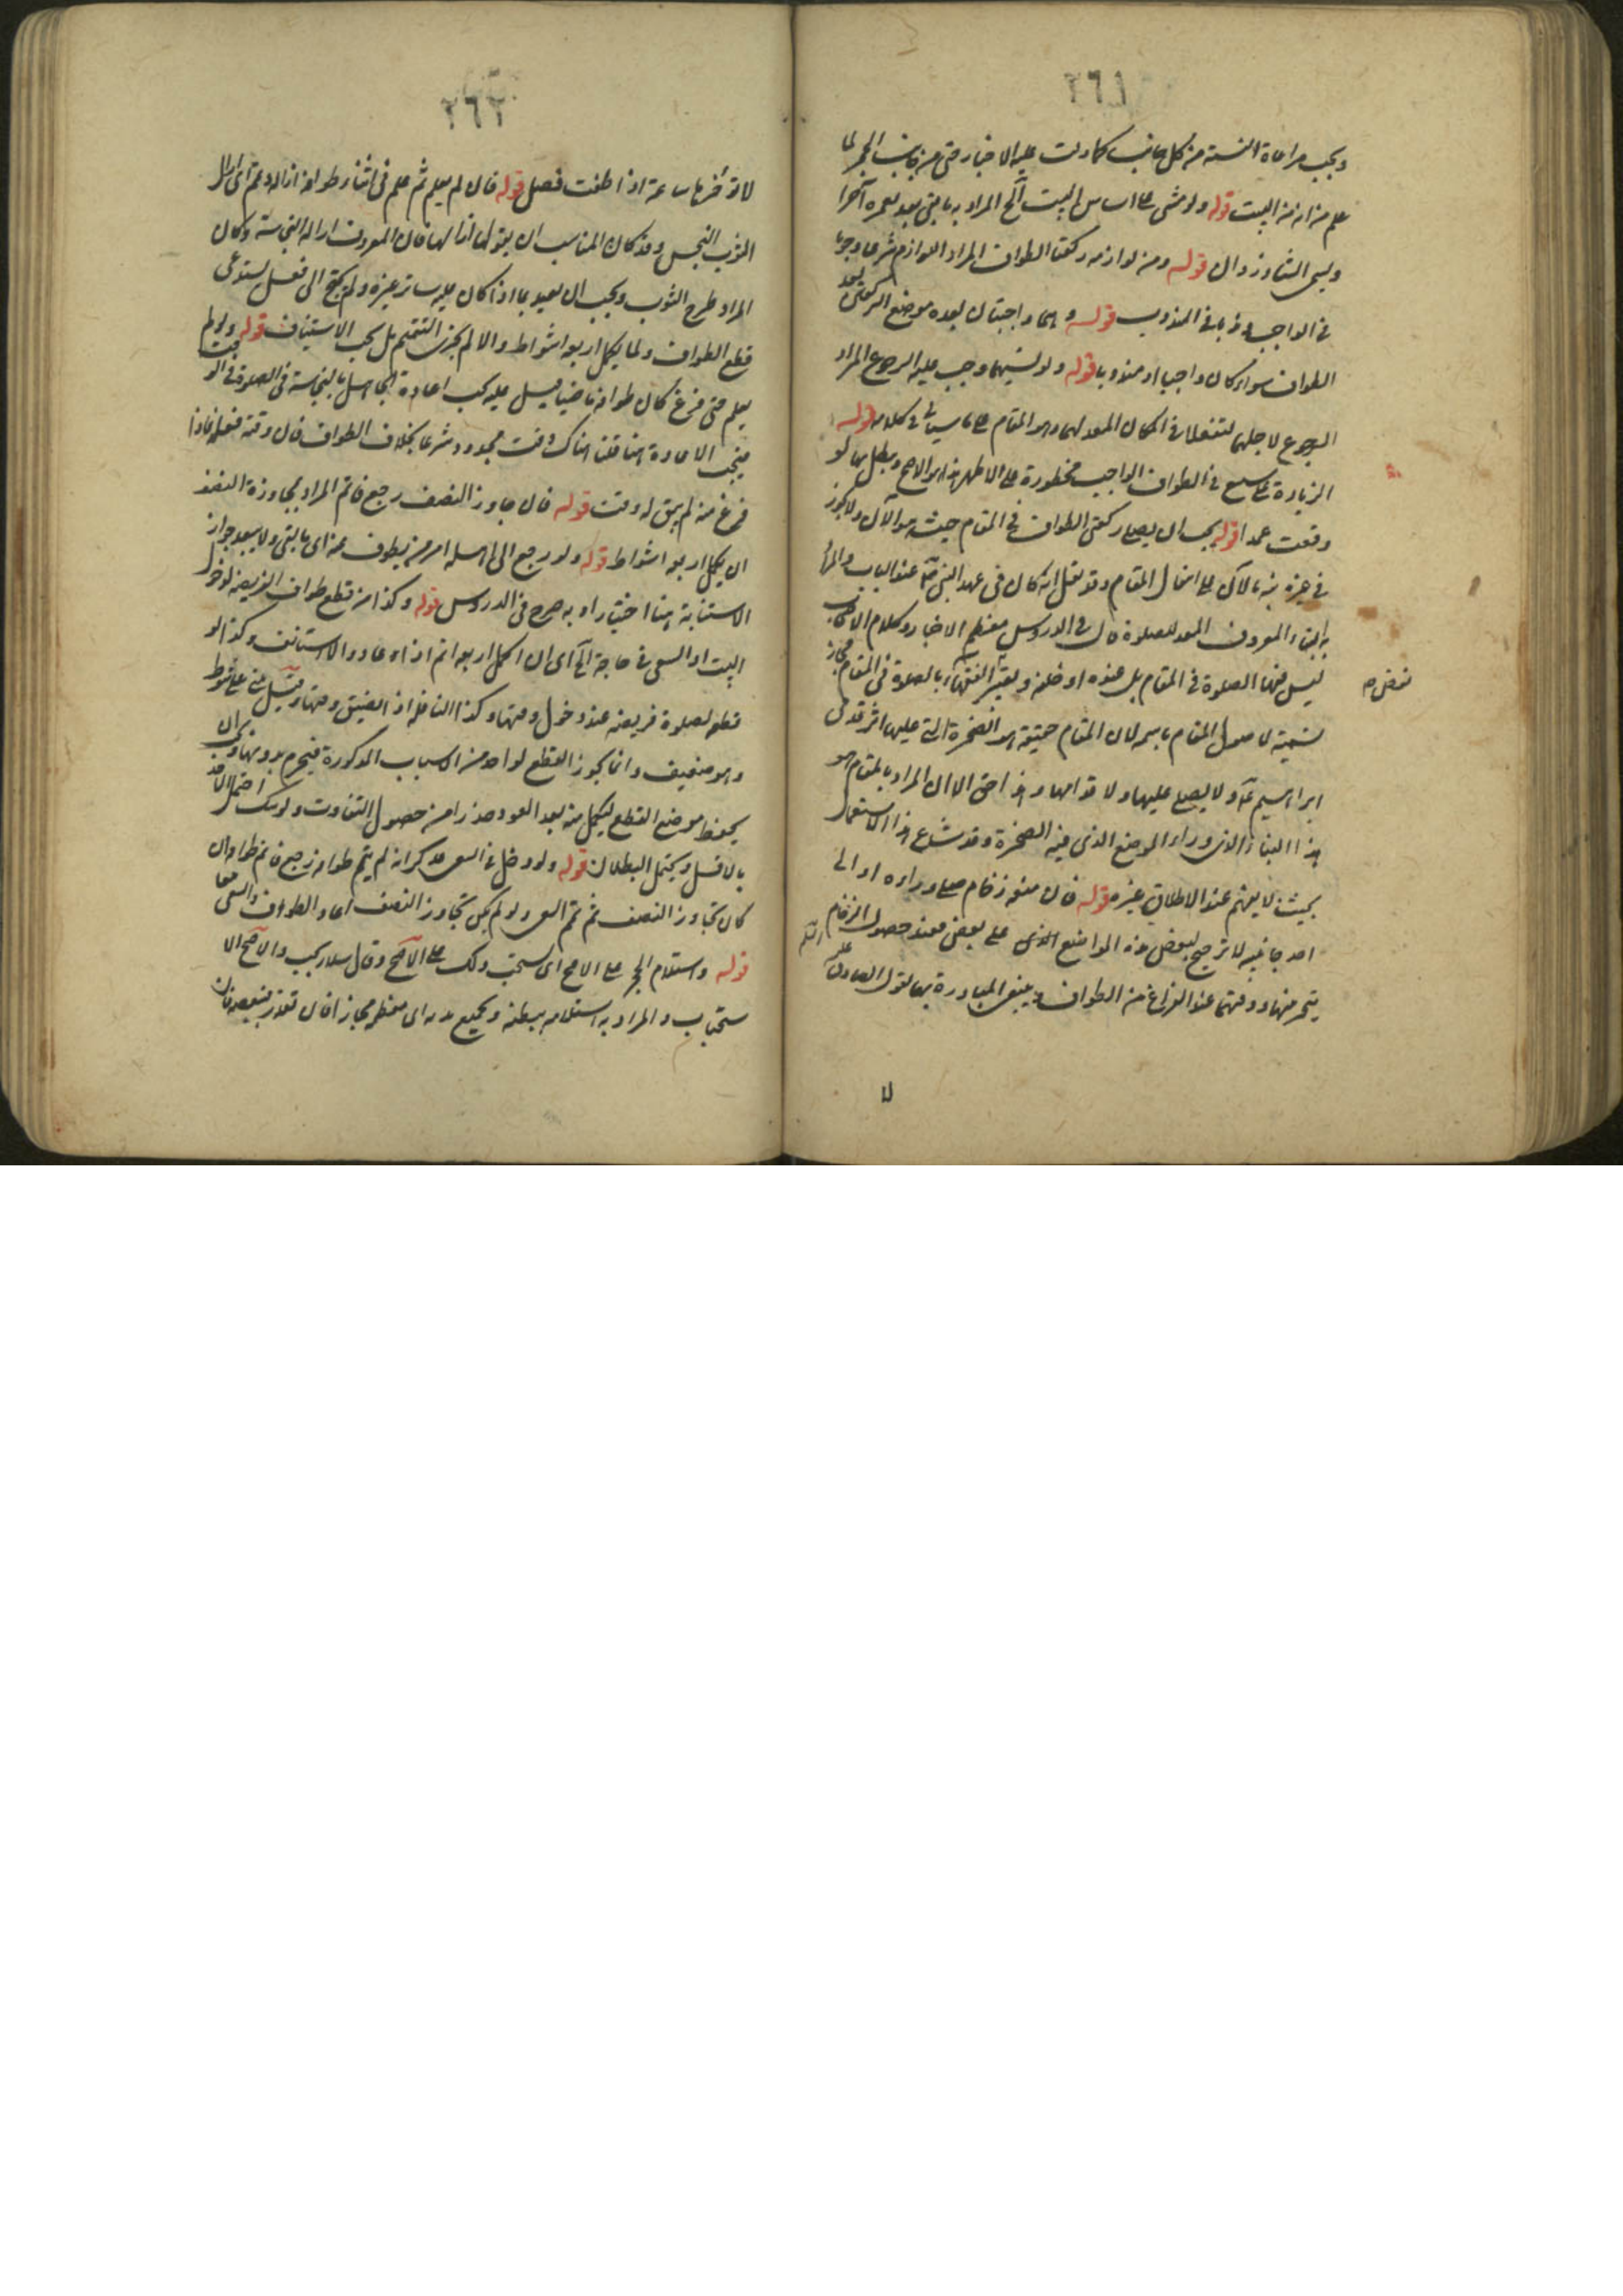 ٢٦١
ويجب مراعاة النسبة من كل جانب كما دلت عليه الاخبار حتى من جانب الحجر لما
علم من انه من البيت قوله ولو مشى على اساس البيت الخ المراد به ما بقى بعد تعميره آخرا
ويسمى الشاذروان قوله ومن لوازمه ركعتا الطواف المراد اللوازم شرعا وجوبا
فى الواجب وندبا فى المندوب قوله وهما واجبتان بعده موضع الركعتين بعد
الطواف سواء كان واجبا او مندوبا قوله ولو نسيهما وجب عليه الرجوع المراد
الرجوع لاجلهما لتفعلا فى المكان المعد لهما وهو المقام على ما سيأتى فى كلامه قوله
الزيادة على سبع فى الطواف الواجب محظورة على الاظهر هذا هو الاصح ويبطل بها لو
وقعت عمدا قوله يجب ان يصلى ركعتى الطواف فى المقام حيث هو الآن ولا يجوز
فى غيره نبه بالآن على انتقال المقام وقد نقل انه كان فى عهد النبى ص عند الباب والمراد
به البناء المعروف المعد للصلاة قال فى الدروس معظم الاخبار وكلام الاصحاب
ليس فيهما الصلوة فى المقام بل عنده او خلفه وتعبير الفقهاء بالصلوة فى المقام مجاز
تسمية لما حول المقام باسمه لان المقام حقيقة هو الصخرة التى عليها اثر قدمى
ابراهيم ع ولا يصلى عليها ولا قدامها وهذا حق الا ان المراد بالمقام هو
هذا البناء الذى وراء الموضع الذى فيه الصخرة وقد شاع هذا الاستعمال
بحيث لا يفهم عند الاطلاق غيره قوله فان منعه زحام صلى وراءه او الى
احد جانبيه لا ترجيح لبعض هذه المواضع الذى على بعض فعند حصول الزحام
يتخير فيها ووقتهما عند الفراغ من الطواف وينبغى المبادرة بهما لقول الصادق ع
لا
٢٦٢
لا تؤخرها ساعة اذا طفت فصل قوله فان لم يعلم ثم علم فى اثناء طوافه ازاله وتمم اى ازال
الثوب النجس وقد كان المناسب ان يقول ازالها فان المعروف ازالة النجاسة وكان
المراد طرح الثوب ويجب ان يقيد بما اذا كان عليه ساتر غيره ولم يحتج الى فعل يستدعى
قطع الطواف ولما يكمل اربعة اشواط والا لم يجز التتميم بل يجب الاستيناف قوله ولو لم
يعلم حتى فرغ كان طوافه ماضيا ليس عليه كما يجب اعادة الجاهل بالنجاسة فى الصلوة فى الوقت
فيجب الاعادة هنا قلنا هناك وقت محدود شرعا بخلاف الطواف فان وقته فعله فاذا
فرغ منه لم يبق له وقت قوله فان جاوز النصف رجع فاتم المراد بمجاوزة النصف
ان يكمل اربعة اشواط قوله ولو رجع الى اهله امر من يطوف عنه اى ما بقى ولا يبعد جواز
الاستنابة هنا اختيارا وبه صرح فى الدروس قوله وكذا من قطع طواف الفريضة لدخول
البيت او السعى فى حاجة الخ اى ان اكمل اربعة اتم اذا عاد والا استأنف وكذا لو
قطعه لصلوة فريضة عند دخول وقتها وكذا النافلة اذا ضيق وقتها وقيل يبنى على شوط
وهو ضعيف وانما يجوز القطع لواحد من الاسباب المذكورة فيحرم بدونها ويجب ان
يحفظ موضع القطع ليكمل منه بعد العود حذرا من حصول التفاوت ولو شك احتمل الاخذ
بالاقل ويحتمل البطلان قوله ولو دخل فى السعى فذكر انه لم يتم طوافه رجع فاتم طوافه ان
كان تجاوز النصف ثم تمم السعى ولو لم يكن تجاوز النصف اعاد الطواف والسعى معا
قوله واستلام الحجر على الاصح اى يستحب ذلك على الاصح وقال سلار يجب والاصح الا
ستحباب والمراد به استلامه ببطنه وبجميع بدنه اى معظمه مجازا فان تعذر فببعضه فان